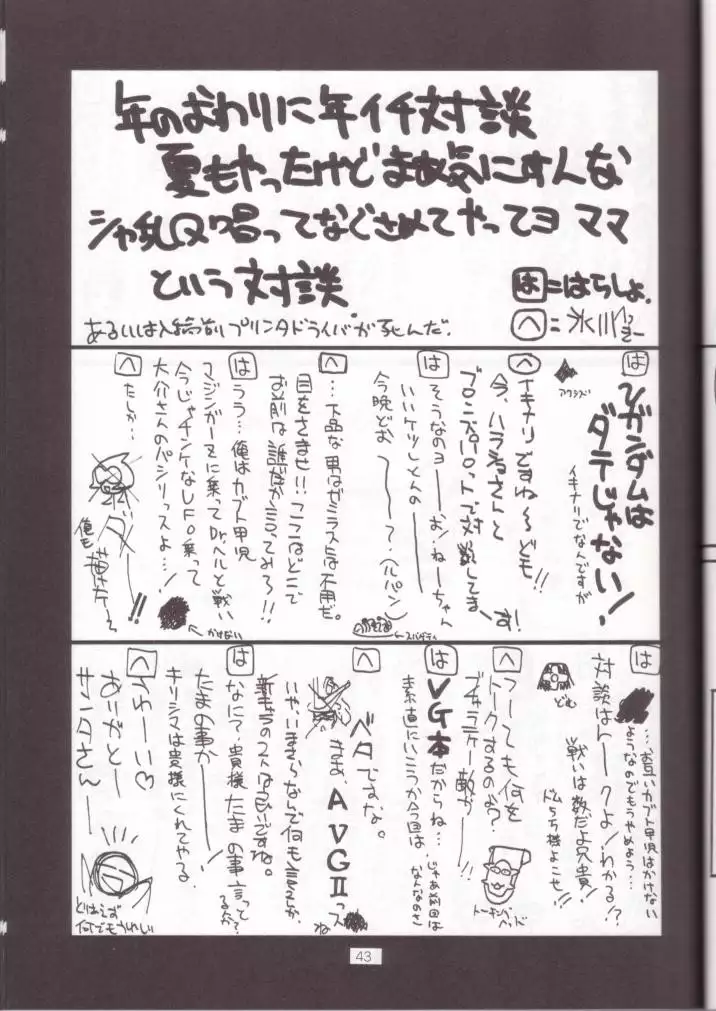 年のおわりに年イチ対談
夏もやったけどまぁ気にすんな
シャ乱Q唱ってなぐさめてやってヨ ママ
という対談.
は=はらしょ.
へ=氷川
あるいは入稿前プリンタドライバが死んだ.
は
νガンダムは
ダテじゃない!
イキナリでなんですが
アクシズ
へ
イキナリですね〜ども!!
今、ハラショさんと
ブロンズパロットで対談してまーす!
は
そうなのヨーーお/ねーちゃん
いいケツしとんのーー
今晩どおーー?
スパゲティ
へ
…下品な男はゼミラスには不用だ。
目をさませ!!ここはどこで
お前は誰だか言ってみろ!!
は
うう…俺はカブト甲児
マジンガーZに乗ってDr.ヘルと戦い
今じゃチンケなUFO乗って
大介さんのパシリっスよ…!
かけない
へ
たしか…
ダーー!!
俺も描けたー
は
…お互いカブト甲児はかけない
ようなのでもうやめよう…
対談はトークよ!わかる!?
戦いは数だよ兄貴!
ドムちち機よこせ!!
どむ
へ
つーても何を
トークするのよ?
ブチャラティー敵がー!!
トーキングヘッド
は
VG本だからね…
素直にいこうか今回は
じゃあ前回は
なんなのさ
へ
ベタですな。
まぁ、AVGⅡっスね
いやいまさらなんで何も言えんが、
新キャラのコスは良いですね。
は
なにて?貴様たまの事言ってるのか?
たまの事かーー!
キリシマは貴様にくれてやる.
へ
うわーい♡
ありがとー
サンタさんー
とりあえず
何でもうれしい
43